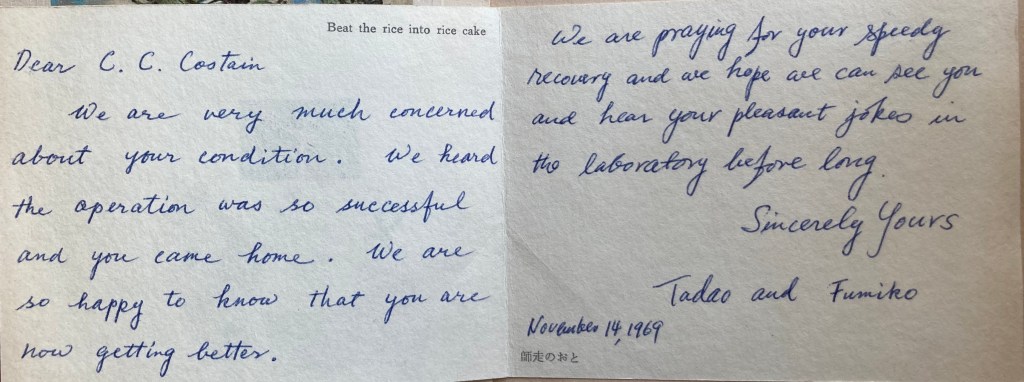 Beat the rice into rice cake
Dear C. C. Costain
We are very much concerned
about your condition. We heard
the operation was so successful
and you came home. We are
so happy to know that you are
now getting better.
We are praying for your speedy
recovery and we hope we can see you
and hear your pleasant jokes in
the laboratory before long.
Sincerely Yours
Tadao and Fumiko
November 14, 1969
師走のおと